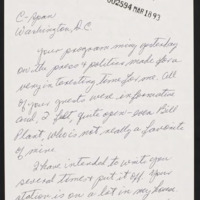 002594 MAR 18 93
C-Span
Washington, D.C.
Your program many yesterday
on the press & politics, made for a
very interesting time for me. All
of your guests were informative
and, I felt, quite open - even Bill
Plant, who is not really a favorite
of mine.
I have intended to write you
several times & put it off. Your
station is on a lot in my house.